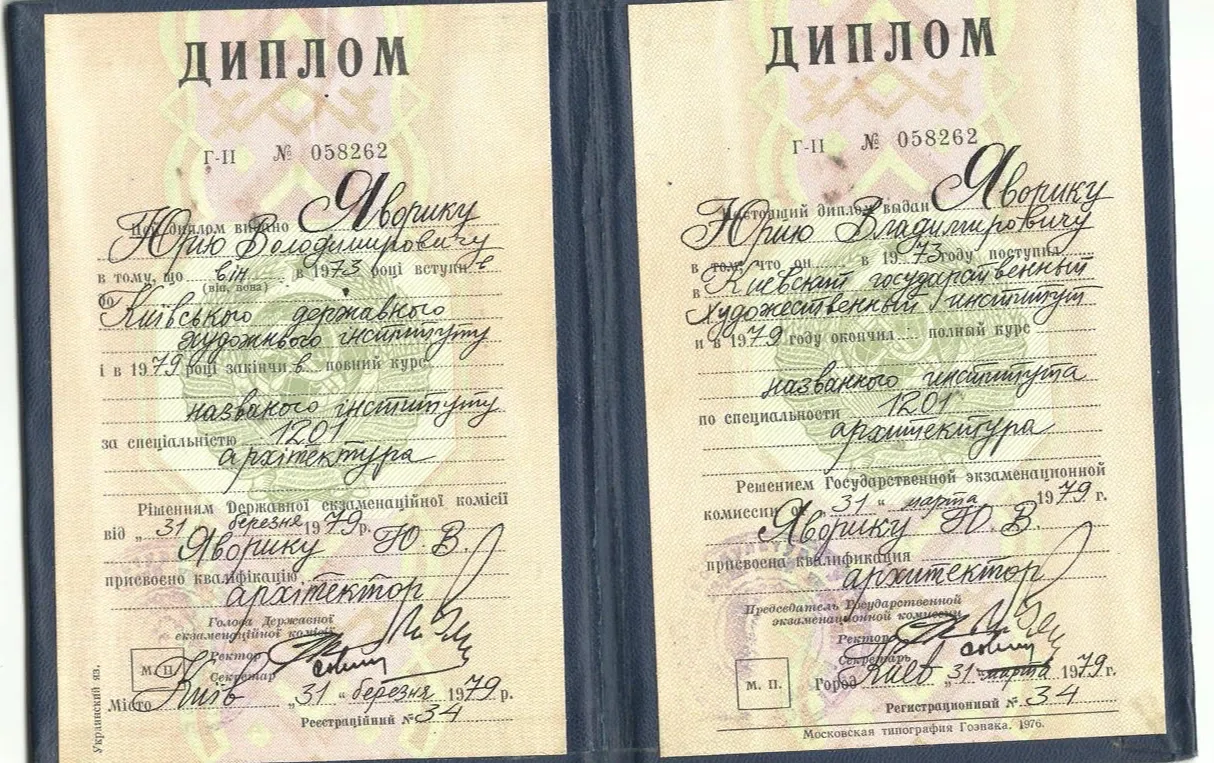 ДИПЛОМ
Г-II № 058262
Цей диплом видано Яворику
Юрію Володимировичу
в тому, що він в 1973 році вступив
(він, вона)
до Київського державного
художнього інституту
і в 1979 році закінчив повний курс
названого інституту
за спеціальністю 1201
архітектура
Рішенням Державної екзаменаційної комісії
від „31 березня 1979 р.
Яворику Ю. В.
присвоєно кваліфікацію
архітектор
Голова Державної
екзаменаційної комісії
Ректор
Секретар
М. П.
Місто Київ „31 “ березня 1979 р.
Реєстраційний № 34
Украинский яз.
ДИПЛОМ
Г-II № 058262
Настоящий диплом выдан Яворику
Юрию Владимировичу
в том, что он в 1973 году поступил
в Киевский государственный
художественный институт
и в 1979 году окончил полный курс
названного института
по специальности 1201
архитектура
Решением Государственной экзаменационной
комиссии от „31 “ марта 1979 г.
Яворику Ю. В.
присвоена квалификация
архитектор
Председатель Государственной
экзаменационной комиссии
Ректор
Секретарь
М. П.
Город Киев „31 “ марта 1979 г.
Регистрационный № 34
Московская типография Гознака. 1976.